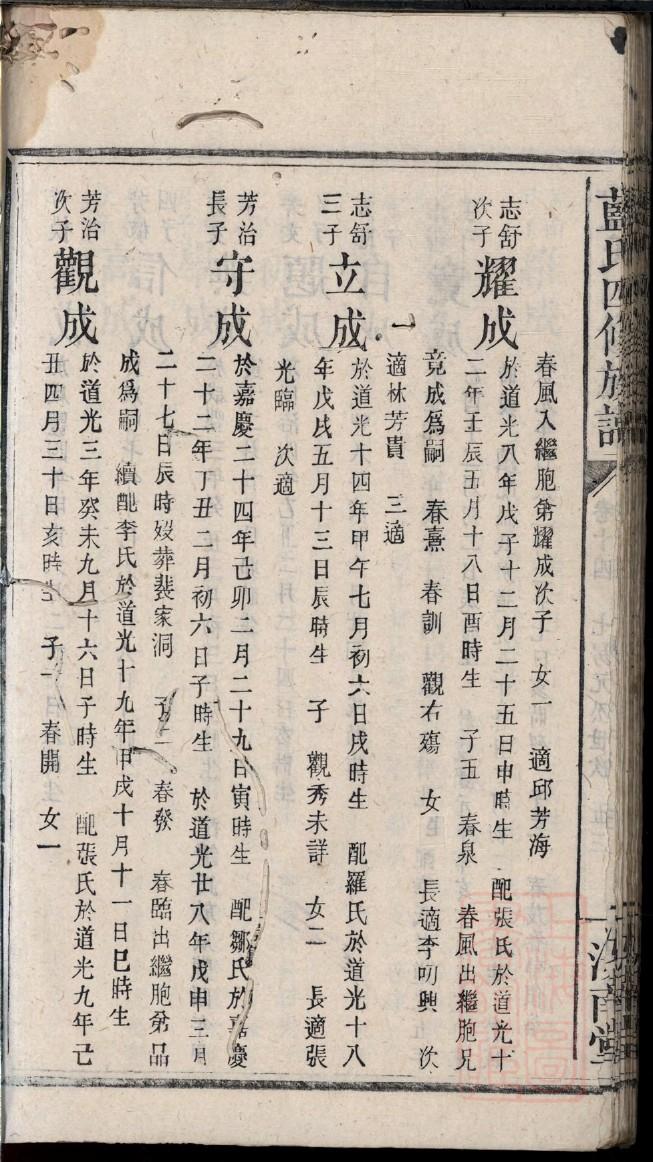 藍氏四修族譜
濟南堂
春風入繼胞弟耀成次子 女一 適邱芳海
志舒次子 耀成 於道光八年戊子十二月二十五日申時生 配張氏於道光十
二年壬辰五月十八日酉時生 子五 春泉 春風出繼胞兄
竟成爲嗣 春熹 春訓 觀右殤 女 長適李叨興 次
適林芳貴 三適
志舒三子 立成 於道光十四年甲午七月初六日戌時生 配羅氏於道光十八
年戊戌五月十三日辰時生 子 觀秀未詳 女二 長適張
光臨 次適
芳治長子 守成 於嘉慶二十四年己卯二月二十九日寅時生 配鄒氏於嘉慶
二十二年丁丑二月初六日子時生 於道光廿八年戊申三月
二十七日辰時歿葬裴家洞 子二 春發 春臨出繼胞弟品
成爲嗣 續配李氏於道光十九年甲戌十月十一日巳時生
芳治次子 觀成 於道光三年癸未九月十六日子時生 配張氏於道光九年己
丑四月三十日亥時生 子一 春開 女一